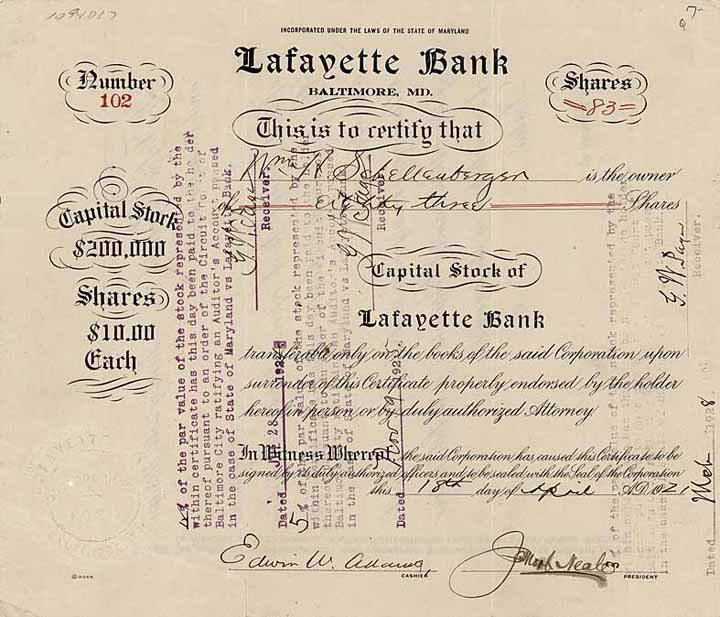 1094017
7-
INCORPORATED UNDER THE LAWS OF THE STATE OF MARYLAND
Lafayette Bank
BALTIMORE, MD.
Number
102
Shares
83
This is to certify that
Wm. Shellenberger is the owner
eighty three Shares
Capital Stock
$200,000
Shares
$10.00
Each
Capital Stock of
Lafayette Bank
transferable only on the books of the said Corporation upon
surrender of this Certificate properly endorsed by the holder
hereof in person or by duly authorized Attorney
In Witness Whereof, the said Corporation has caused this Certificate to be
signed by its duly authorized officers and to be sealed with the Seal of the Corporation
this 18th day of April A.D. 1921
Edwin W. Adams,
CASHIER
PRESIDENT
% of the par value of the stock represented by the
within certificate has this day been paid to the holder
thereof pursuant to an order of the Circuit Court of
Baltimore City ratifying an Auditor's Account passed
in the case of State of Maryland vs Lafayette Bank.
Receiver.
Dated 28 192
5% of the par value of the stock represented by the
within certificate has this day been paid to the holder
thereof pursuant to an order of the Circuit
Baltimore City ratifying an Auditor's
in the case of State of Maryland vs Lafayette Bank
Receiver.
Dated 192
% of the par value of the stock represented by the
Receiver.
Dated 1928